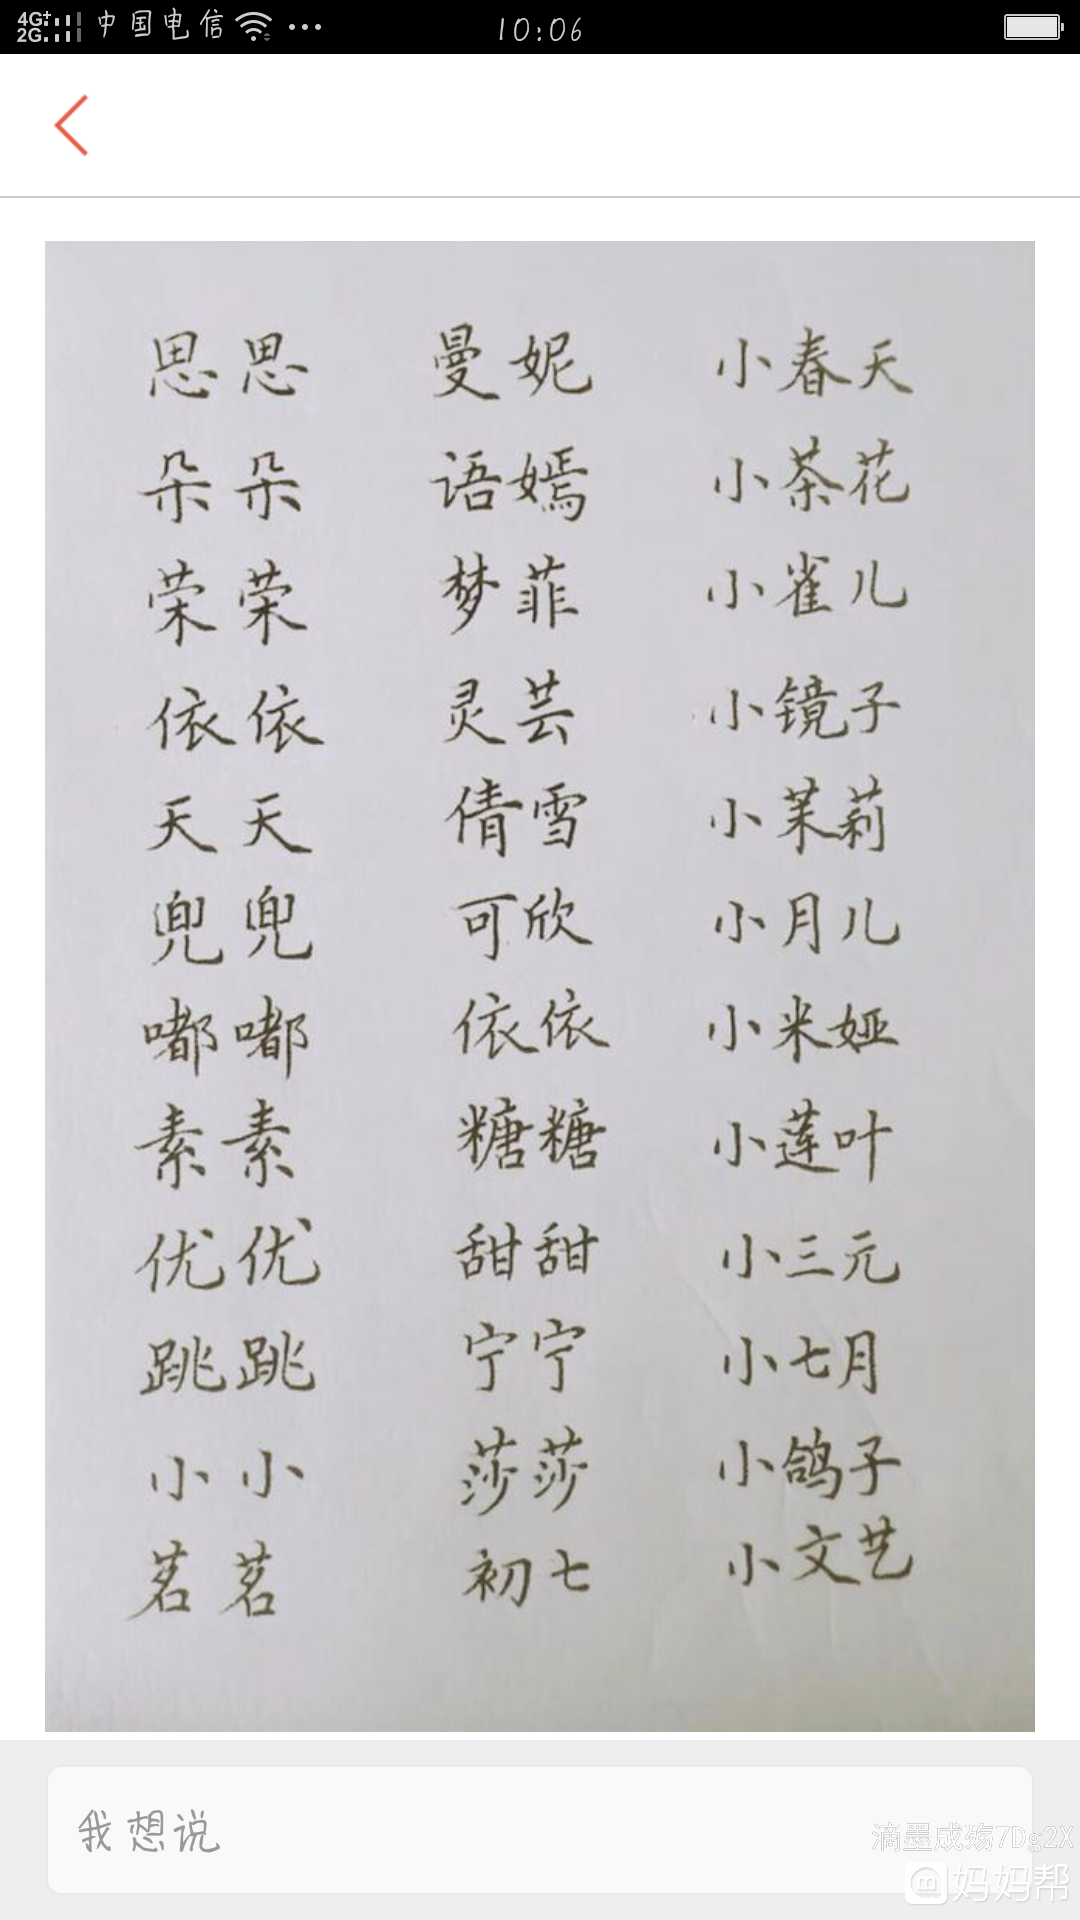 4G+ 2G 中国电信 10:06
思思 曼妮 小春天
朵朵 语嫣 小茶花
荣荣 梦菲 小雀儿
依依 灵芸 小镜子
天天 倩雪 小茉莉
兜兜 可欣 小月儿
嘟嘟 依依 小米娅
素素 糖糖 小莲叶
优优 甜甜 小三元
跳跳 宁宁 小七月
小小 莎莎 小鸽子
茗茗 初七 小文艺
我想说
滴墨成殇7Dg2X
妈妈帮